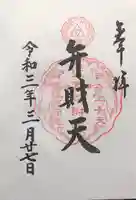 奉拝
弁財天
令和三年三月廿七日